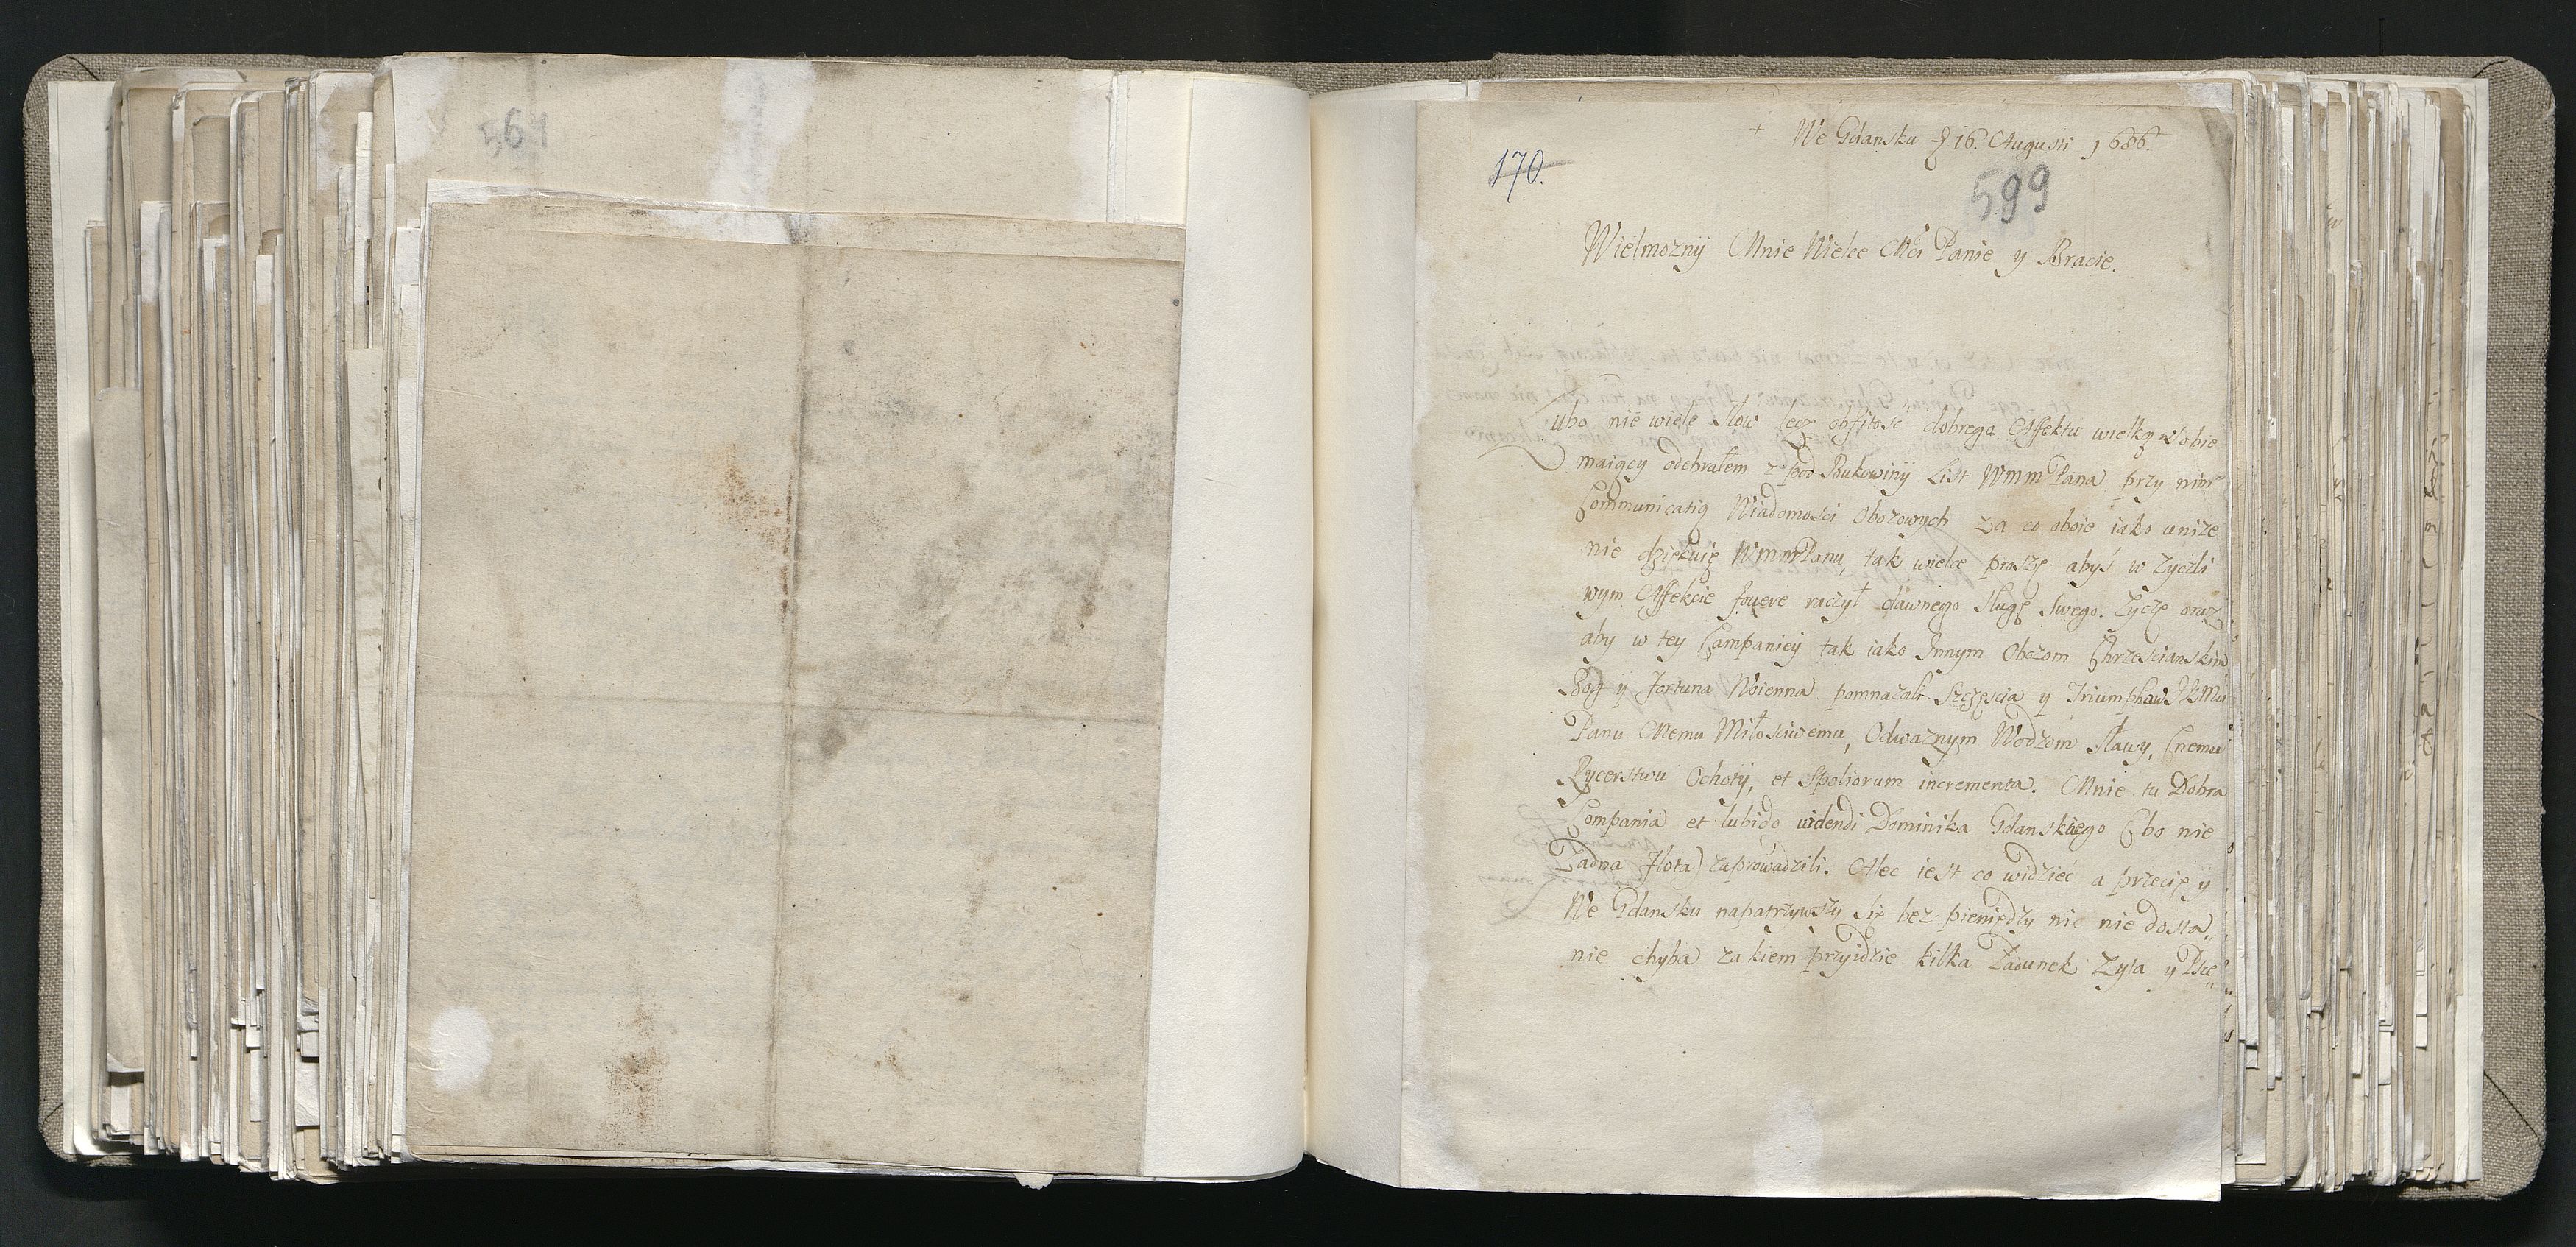 561
We Gdansku d. 16. Augusti 1686.
170.
599
Wielmozny Mnie Wielce Mći Panie y Bracie.
Lubo nie wiele Słow lecz obfitość dobrego Affektu wielką w Sobie
maiący odebrałem z pod Bukowiny List WmmPana przy nim
Communicatią Wiadomosci Obozowych za co oboie iako unize
nie dziękuię WmmPanu, tak wielce proszę abyś w zyczli
wym Affekcie fovere raczył dawnego Sługę Swego. Zyczę oraz
aby w tey Campaniey tak iako Innym Obozom Chrzescianskim
Bog y fortuna Woienna pomnazali Szczęscia y Triumphow
Panu Memu Miłosciwemu, Odwaznym Wodzom Sławy, Cnemu
Rycerstwu Ochoty, et Spoliorum incrementa. Mnie tu Dobra
Compania et lubido videndi Dominika Gdanskiego (bo nie
Zadna flota) zaprowadzili. Alec iest co widzieć a przecię y
We Gdansku napatrzywszy się bez pieniędzy nic nie dosta„
nie chyba za kiem przyidzie kilka Ładunek Zyta y Psze„